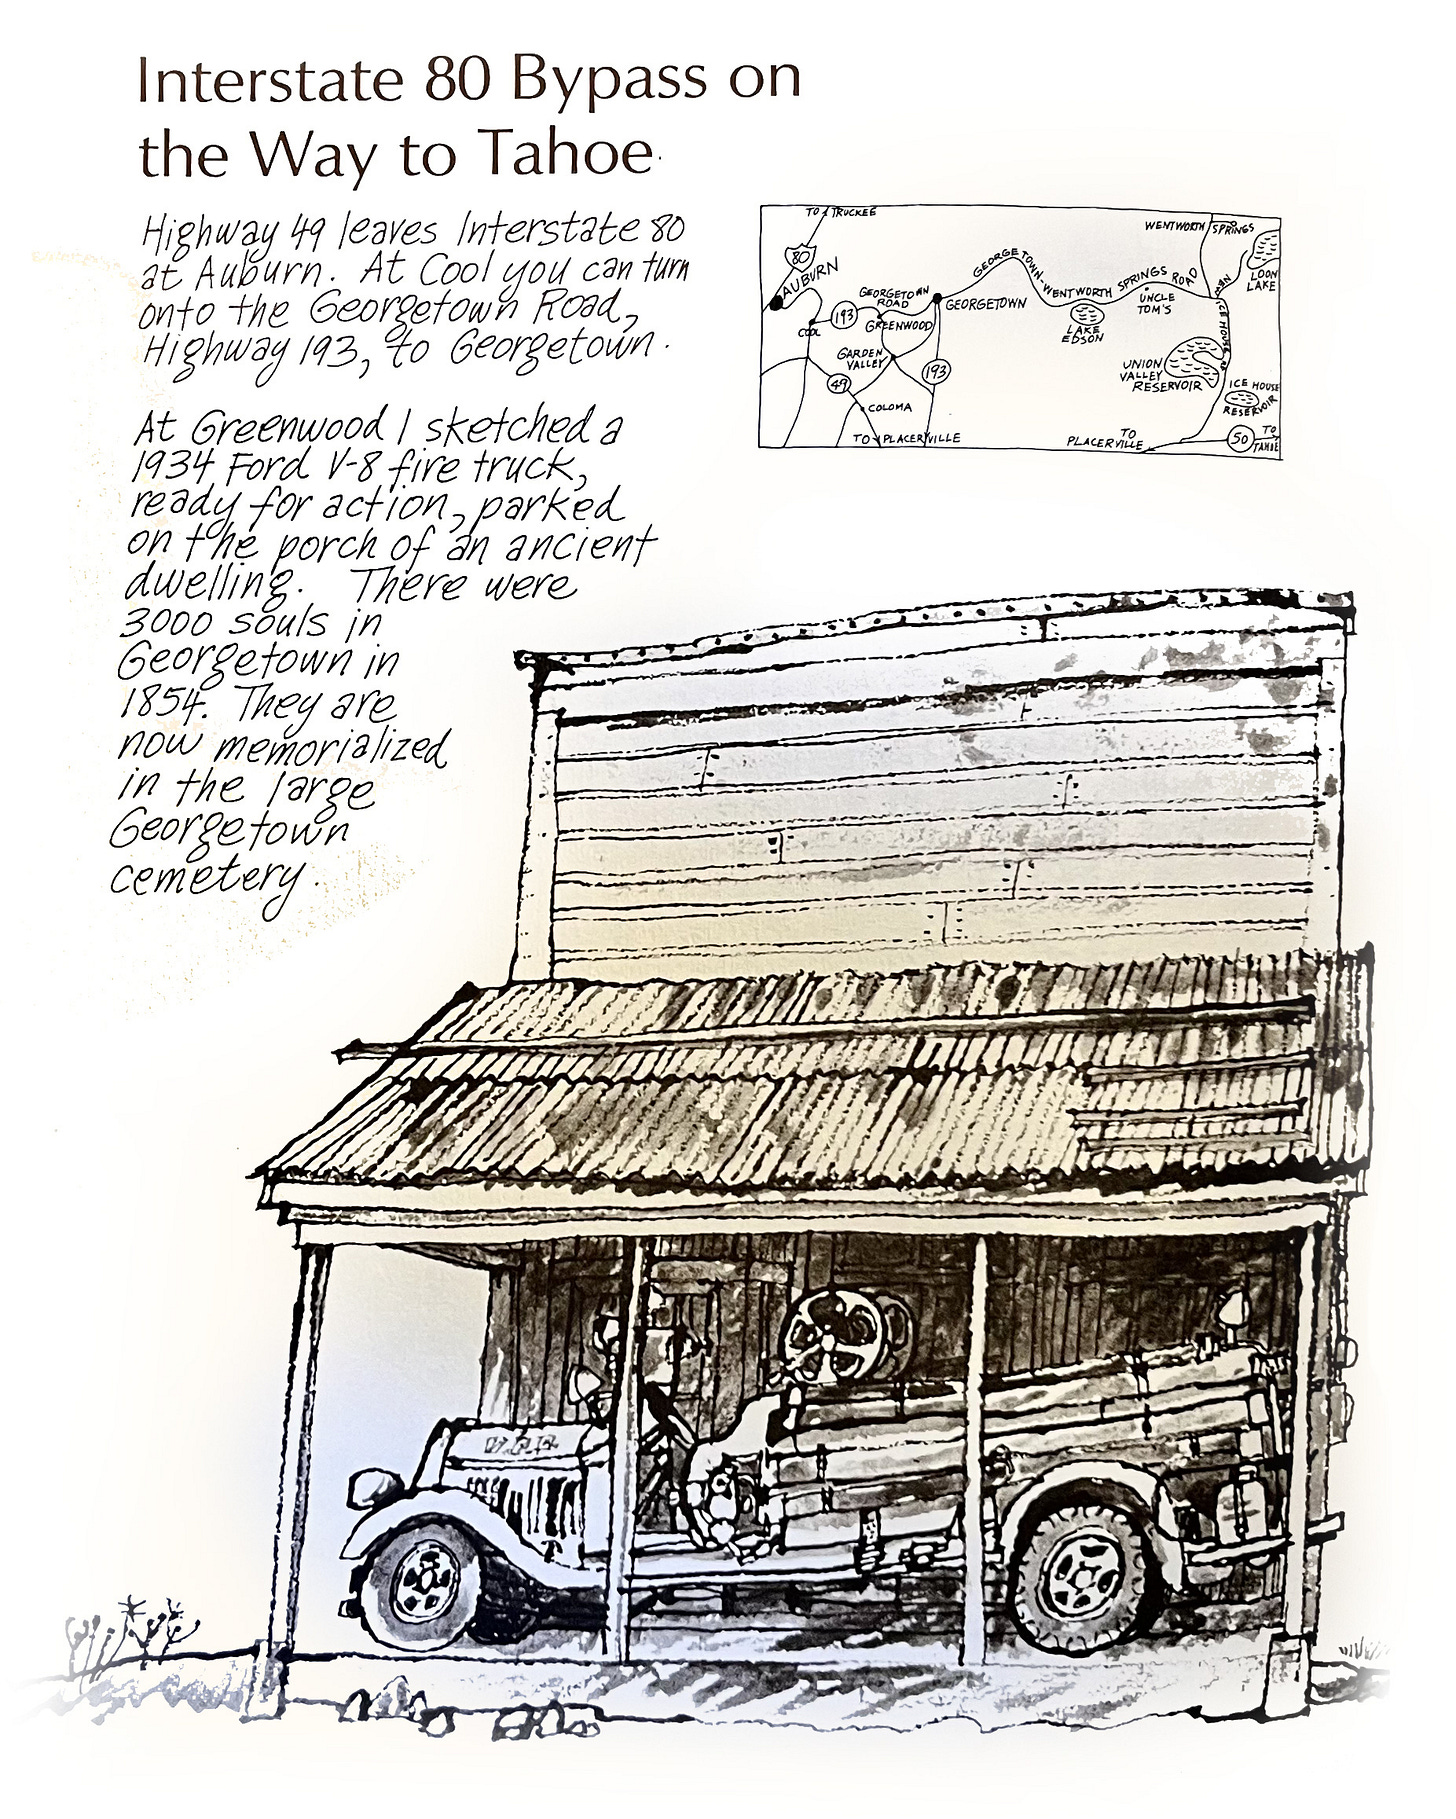 Interstate 80 Bypass on
the Way to Tahoe
Highway 49 leaves Interstate 80
at Auburn. At Cool you can turn
onto the Georgetown Road,
Highway 193, to Georgetown.
At Greenwood I sketched a
1934 Ford V-8 fire truck,
ready for action, parked
on the porch of an ancient
dwelling. There were
3000 souls in
Georgetown in
1854. They are
now memorialized
in the large
Georgetown
cemetery.
TO TRUCKEE
80
AUBURN
COOL
193
GEORGETOWN
ROAD
GREENWOOD
GEORGETOWN
GARDEN
VALLEY
49
193
COLOMA
TO PLACERVILLE
GEORGETOWN-WENTWORTH SPRINGS ROAD
LAKE
EDSON
UNCLE
TOM'S
WENTWORTH SPRINGS
LOON
LAKE
ICE HOUSE RD
UNION
VALLEY
RESERVOIR
ICE HOUSE
RESERVOIR
TO
PLACERVILLE
50
TO
TAHOE